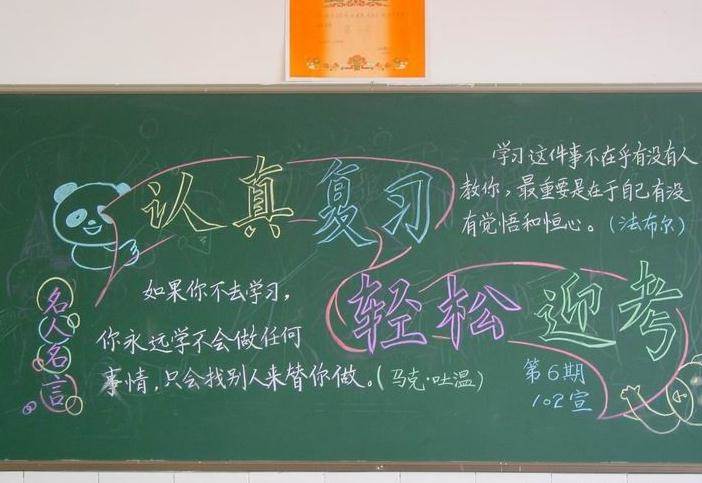 认真复习
学习这件事不在乎有没有人
教你，最重要是在于自己有没
有觉悟和恒心。（法布尔）
轻松迎考
名人名言
如果你不去学习，
你永远学不会做任何
事情，只会找别人来替你做。（马克·吐温）
第6期
102宣